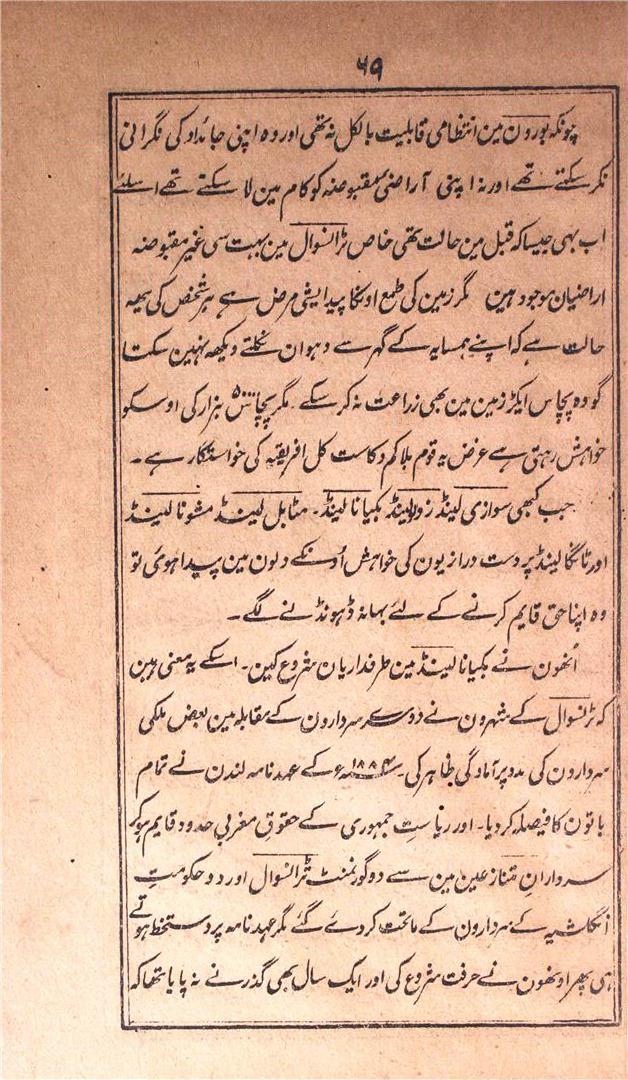 ۶۹
چونکہ بورون مین انتظامی قابلیت بالکل نہ تھی اور وہ اپنی جائداد کی نگرانی
نکر سکتے تھے اور نہ اپنی آراضئ مقبوضہ کو کام مین لا سکتے تھے اسلئے
اب بھی جیسا کہ قبل مین حالت تھی خاص ٹرانسوال مین بہت سی غیر مقبوضہ
اراضیان موجود ہین مگر زمین کی طمع اونکا پیدایشی مرض ہے ہر شخص کی یہہ
حالت ہے کہ اپنے ہمسایہ کے گہر سے دہوان نکلتے دیکھہ نہین سکتا
گو وہ پچاس ایکڑ زمین مین بھی زراعت نہ کر سکے مگر پچاس ہزار کی اوسکو
خواہش رہتی ہے غرض یہ قوم بلا کم و کاست کل افریقہ کی خواستگار ہے۔
جب کبھی سوازی لینڈ زولو لینڈ بکیانا لینڈ۔ مٹابل لینڈ مشونا لینڈ
اور ٹانگا لینڈ پر دست درازیون کی خواہش اُونکے دلون مین پیدا ہوئی تو
وہ اپنا حق قایم کرنے کے لئے بہانہ ڈہونڈنے لگے۔
اُنھون نے بکیانا لینڈ مین طرفداریان شروع کین۔ اسکے یہ معنی ہین
کہ ٹرانسوال کے شہرون نے دوسرے سردارون کے مقابلہ مین بعض ملکی
سردارون کی مدد پر آمادگی ظاہر کی۔ ۱۸۸۴ء کے عہد نامہ لندن نے تمام
باتون کا فیصلہ کر دیا۔ اور ریاستِ جمہوری کے حقوق مغربی حدود قایم ہوکر
سردارانِ متنازعین مین سے دو گورنمنٹ ٹرانسوال اور دو حکومتِ
انگلشیہ کے سردارون کے ماتحت کر دئے گئے مگر عہد نامہ پر دستخط ہوتے
ہی پھر اونھون نے حرفت شروع کی اور ایک سال بھی گذرنے نہ پایا تھا کہ